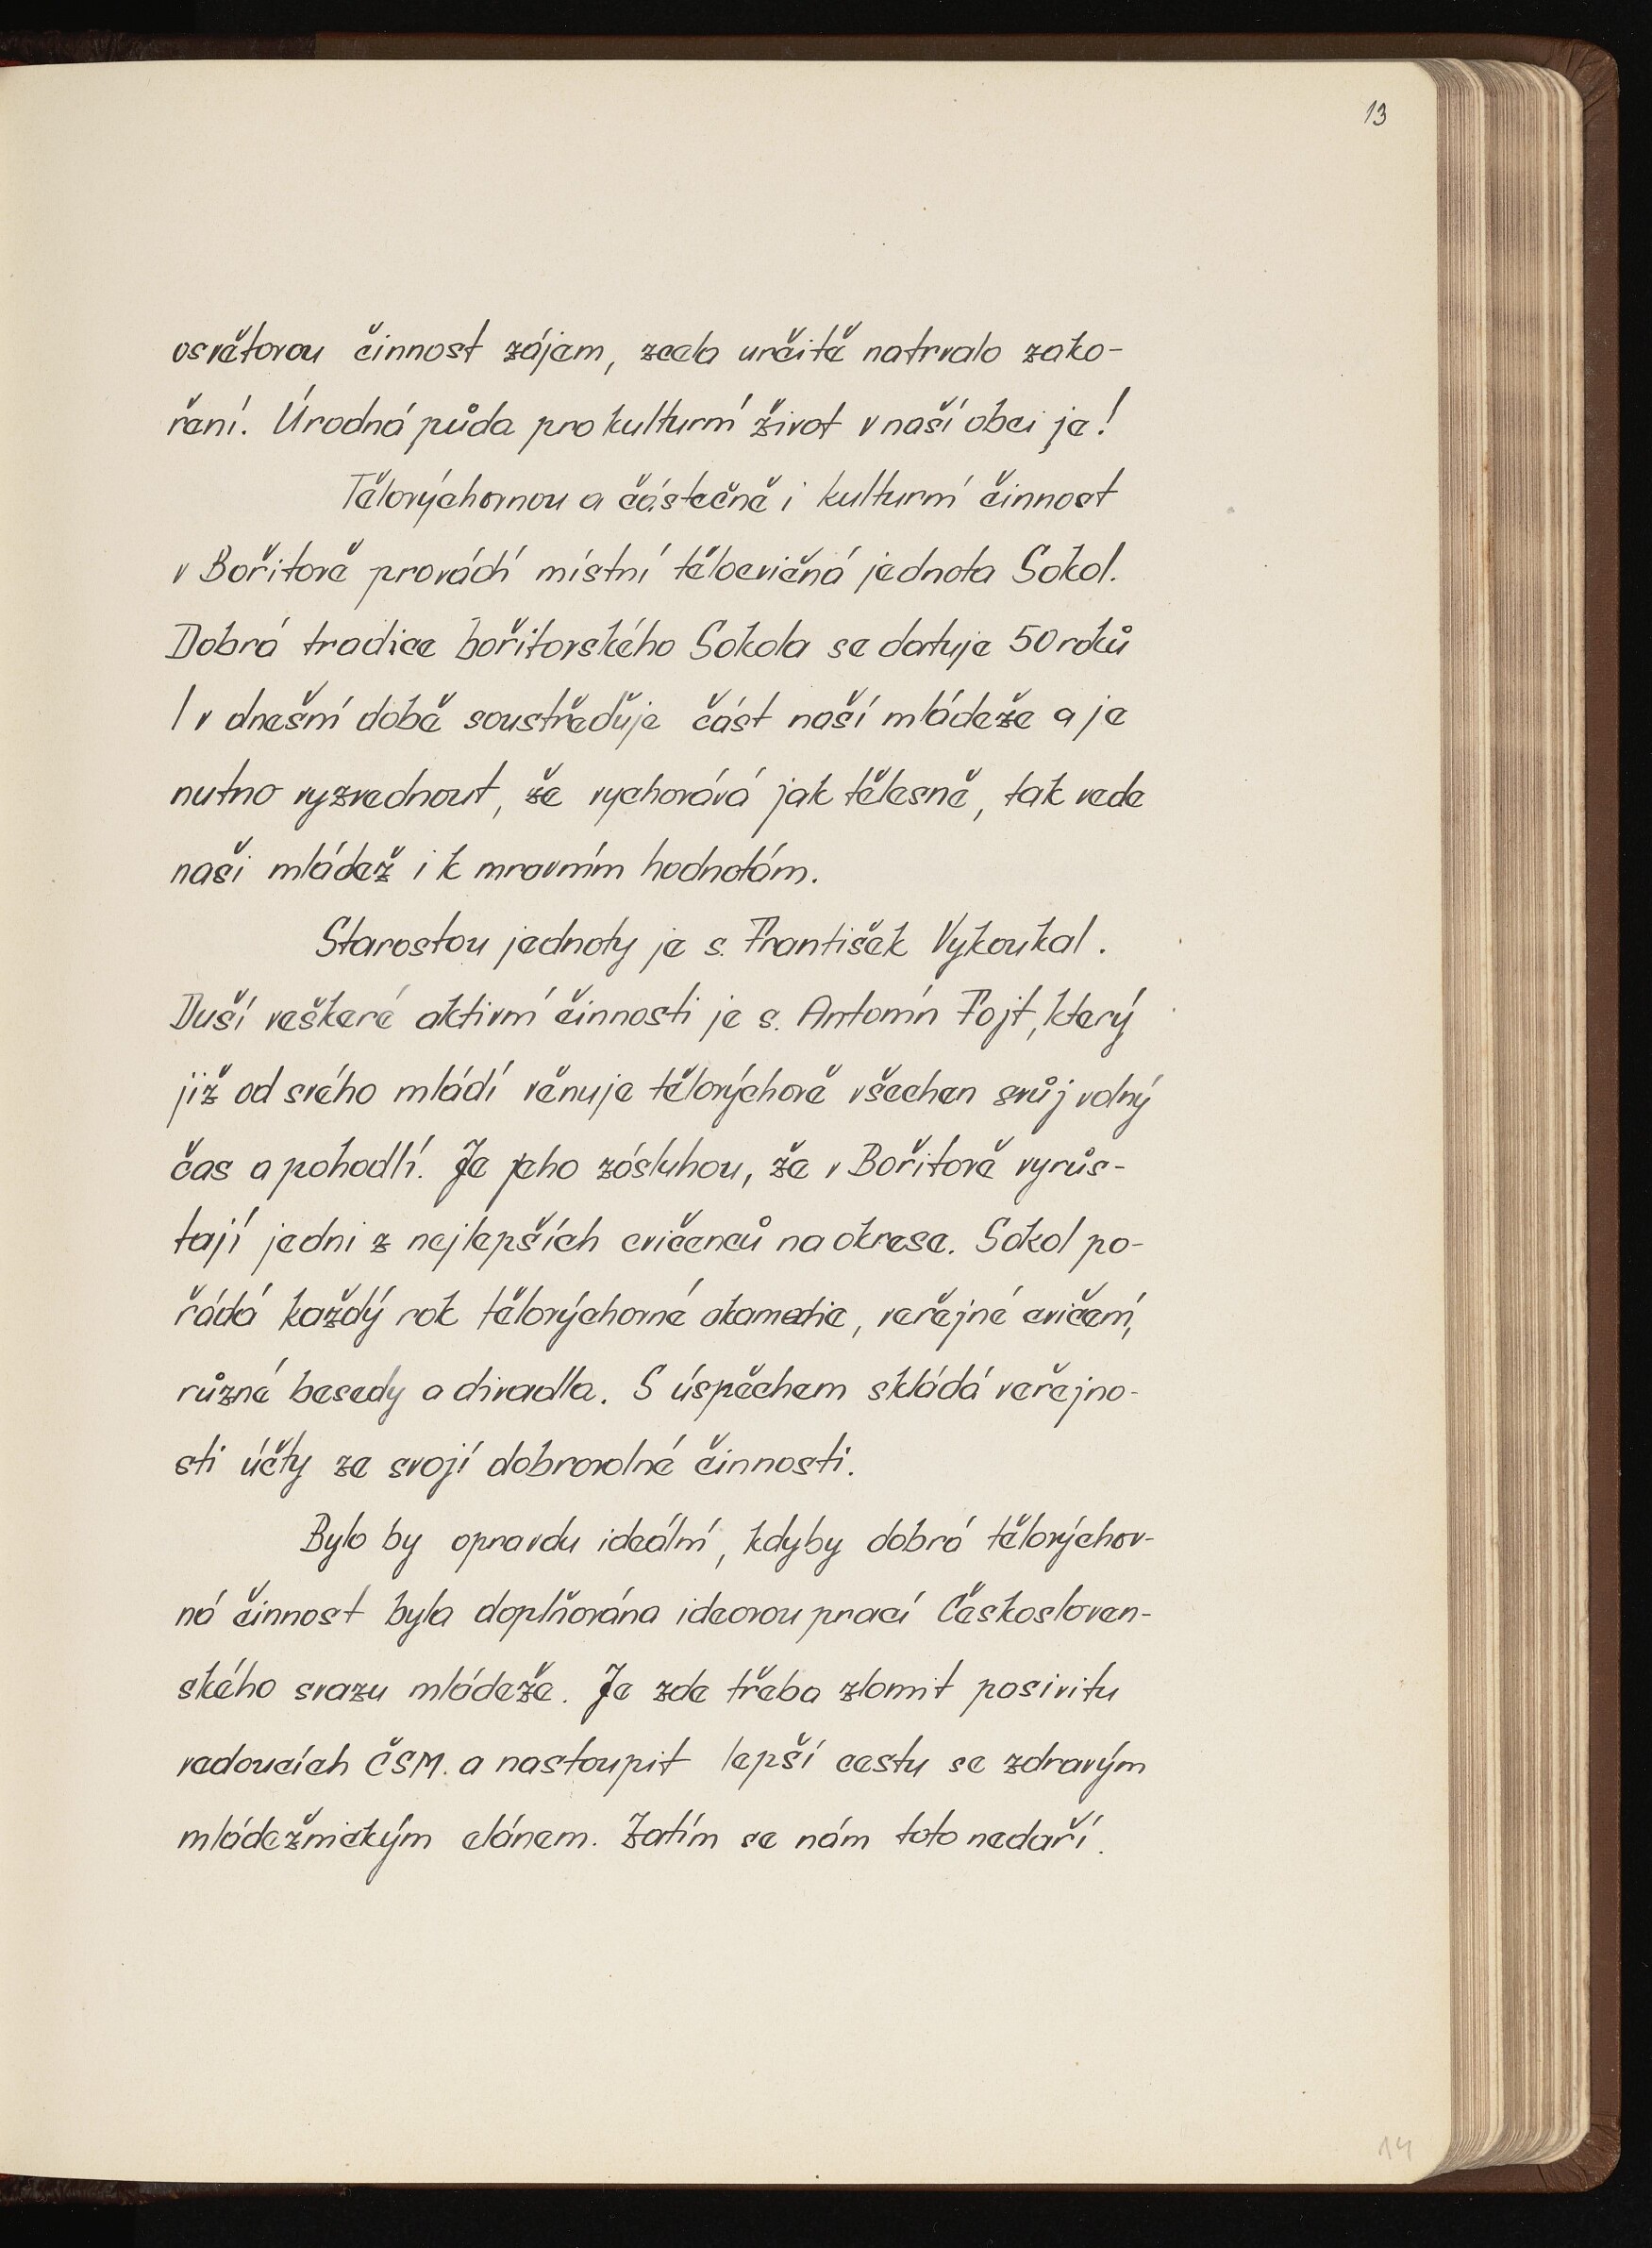 13
osvětovou činnost zájem, zcela určitě natrvalo zako-
ření. Úrodná půda pro kulturní život v naší obci je!
Tělovýchovnou a částečně i kulturní činnost
v Bořitově provádí místní tělocvičná jednota Sokol.
Dobrá tradice bořitovského Sokola se datuje 50 roků
I v dnešní době soustřeďuje část naší mládeže a je
nutno vyzvednout, že vychovává jak tělesně, tak vede
naši mládež i k mravním hodnotám.
Starostou jednoty je s. František Vykoukal.
Duší veškeré aktivní činnosti je s. Antonín Fojt, který
již od svého mládí věnuje tělovýchově všechen svůj volný
čas a pohodlí. Je jeho zásluhou, že v Bořitově vyrůs-
tají jedni z nejlepších cvičenců na okrese. Sokol po-
řádá každý rok tělovýchovné akademie, veřejné cvičení,
různé besedy a divadla. S úspěchem skládá veřejno-
sti účty ze svojí dobrovolné činnosti.
Bylo by opravdu ideální, kdyby dobrá tělovýchov-
ná činnost byla doplňována ideovou prací Českosloven-
ského svazu mládeže. Je zde třeba zlomit pasivitu
vedoucích ČSM. a nastoupit lepší cestu se zdravým
mládežnickým elánem. Zatím se nám toto nedaří.
14